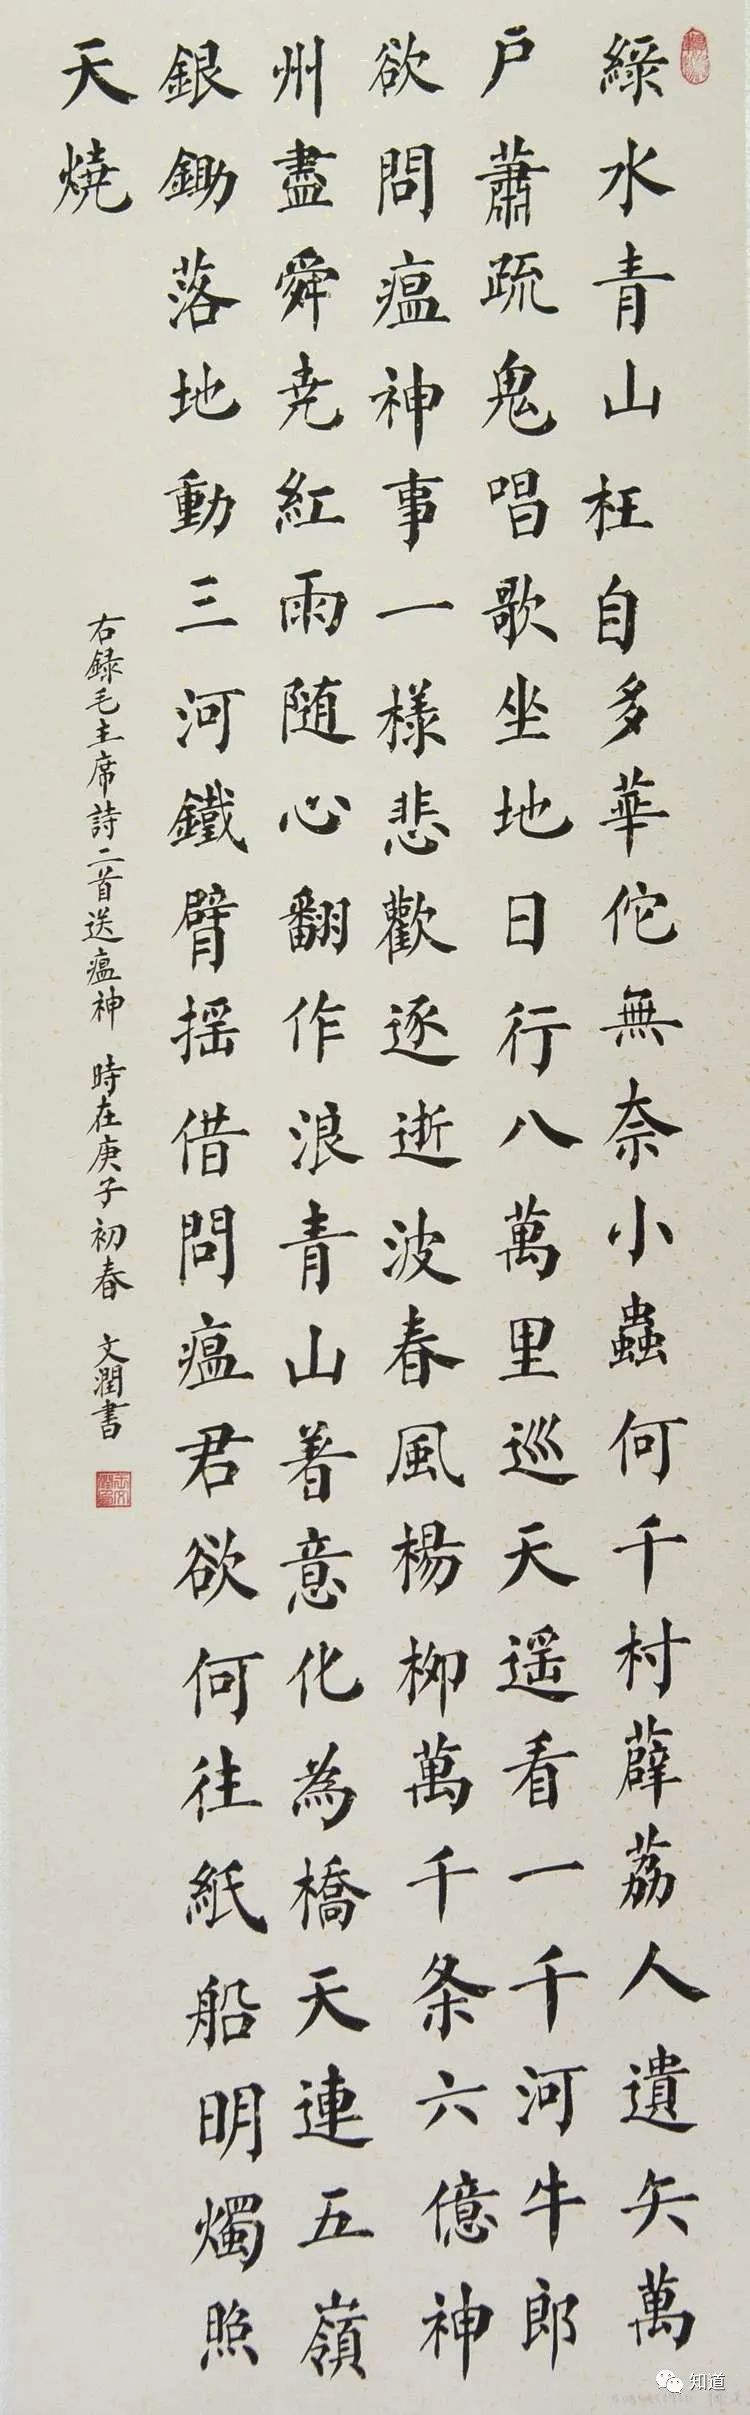 綠水青山枉自多華佗無奈小蟲何千村薜荔人遺矢萬
户蕭疏鬼唱歌坐地日行八萬里巡天遥看一千河牛郎
欲問瘟神事一樣悲歡逐逝波春風楊柳萬千条六億神
州盡舜尭紅雨随心翻作浪青山着意化為橋天連五嶺
銀鋤落地動三河鐵臂揺借問瘟君欲何往紙船明燭照
天燒
右録毛主席詩二首送瘟神 時在庚子初春 文潤書
知道